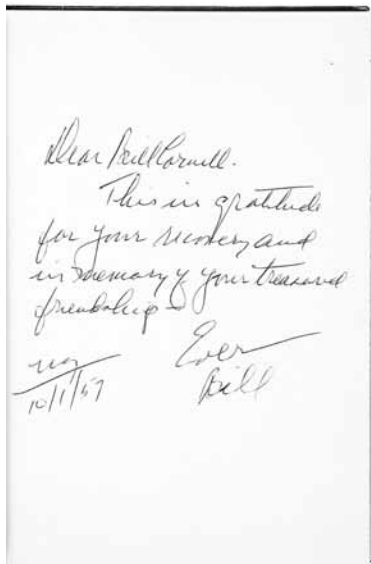 Dear Bill Cornell.
This in gratitude
for your recovery and
in memory of your treasured
friendship —
Ever
Bill
10/1/57